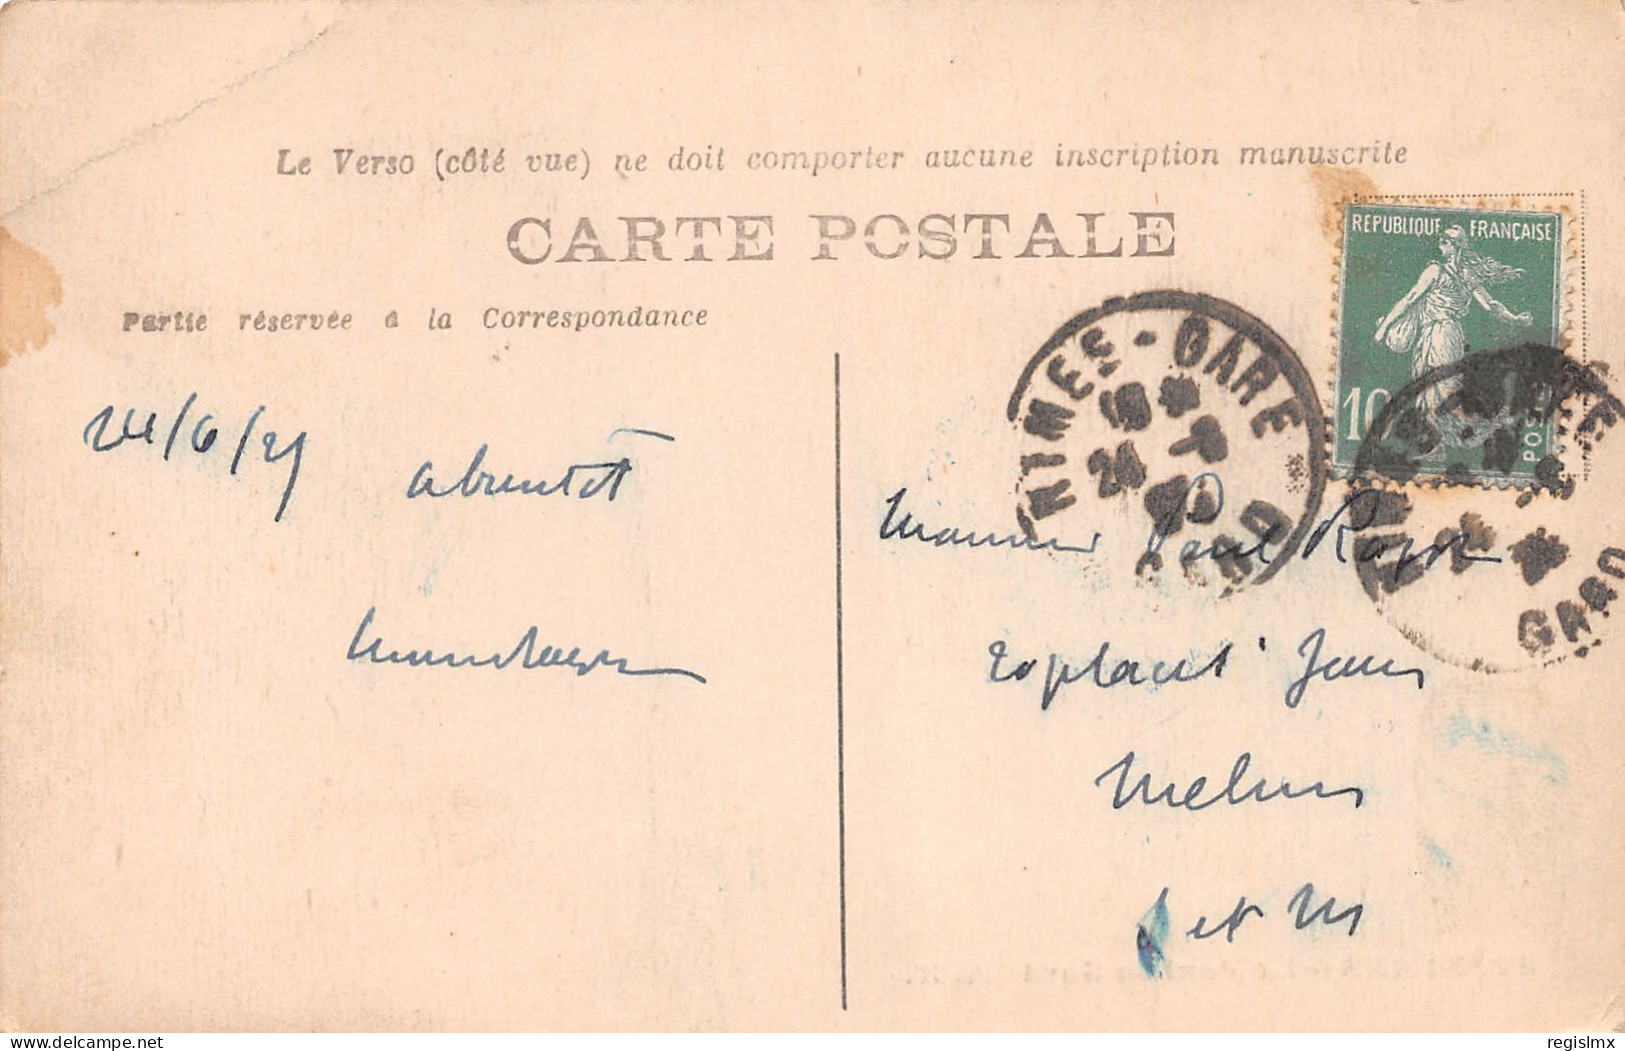 Le Verso (côté vue) ne doit comporter aucune inscription manuscrite
CARTE POSTALE
REPUBLIQUE FRANÇAISE
10
POSTES
Partie réservée à la Correspondance
NIMES - GARE
24
GARD
GARD
24/6/21
a bientôt
Monsieur Paul
Melun
S et M
delcampe.net
regislmx